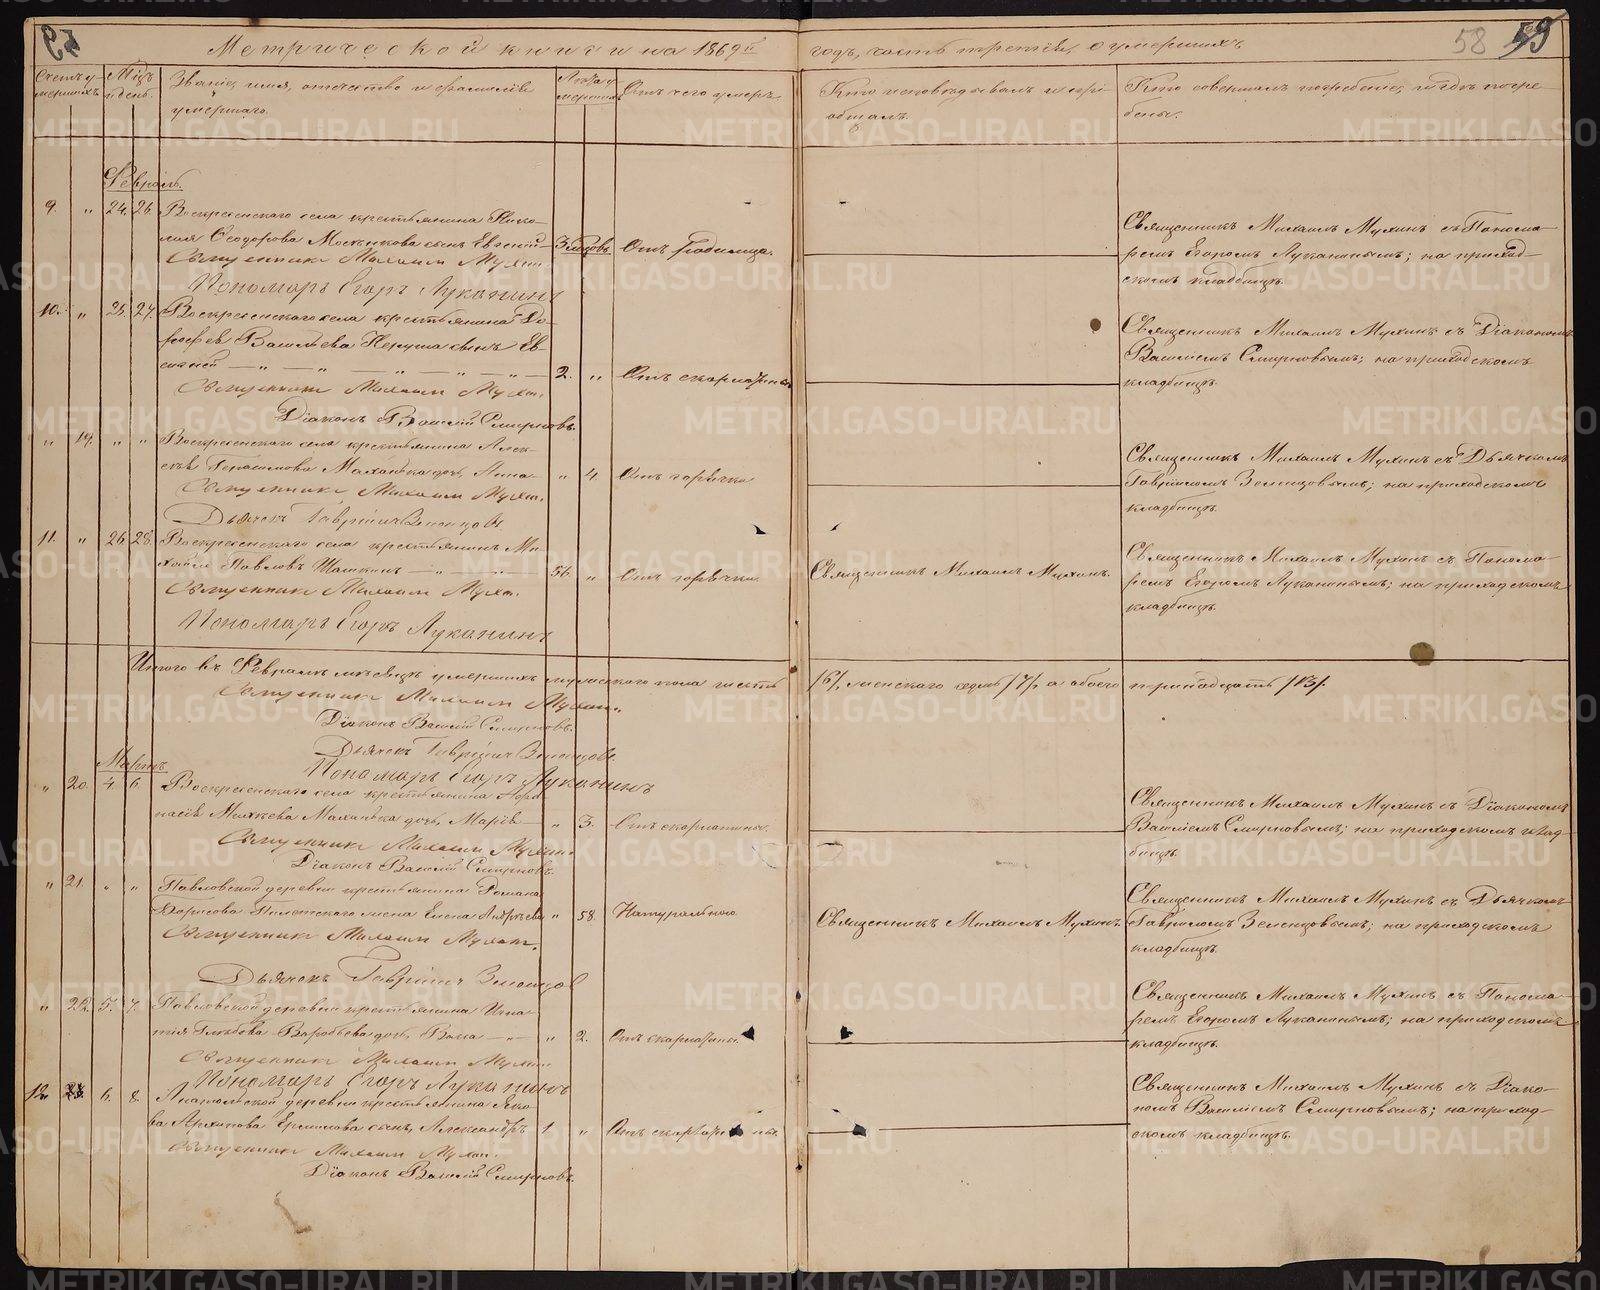 59
Метрической книги на 1869й годъ, часть третія, о умершихъ.
58 59
Счетъ умершихъ.
Мѣсяцъ и день.
Званіе, имя, отчество и фамилія
умершаго.
Лѣта умершихъ.
Отъ чего умеръ.
Кто исповѣдывалъ и прі-
общалъ.
Кто совершалъ погребеніе, и гдѣ погре-
бены.
Февраль.
9. " 24. 26. Воскресенскаго села крестьянина Нико-
лая Ѳеодорова сынъ Евгеній
Священникъ Михаилъ Мухинъ
Пономарь Егоръ Луканинъ
Отъ родимца.
Священникъ Михаилъ Мухинъ съ Понома-
ремъ Егоромъ Луканинымъ; на приход-
скомъ кладбищѣ.
10. " 25. 27. Воскресенскаго села крестьянина До-
рофея Васильева сынъ Ев-
2. " Отъ скарлатины
Священникъ Михаилъ Мухинъ.
Діаконъ Василій Смирновъ.
Священникъ Михаилъ Мухинъ съ Діакономъ
Василіемъ Смирновымъ; на приходскомъ
кладбищѣ.
" 19. " " Воскресенскаго села крестьянина Алек-
сѣя Герасимова Маханька дочь, Анна
" 4. Отъ горячки
Священникъ Михаилъ Мухинъ.
Дьячекъ Гавріилъ Зеленцовъ
Священникъ Михаилъ Мухинъ съ Дьячкомъ
Гавріиломъ Зеленцовымъ; на приходскомъ
кладбищѣ.
11. " 26. 28. Воскресенскаго села крестьянинъ Ми-
хаилъ Павловъ Шашкинъ
56. " Отъ горячки.
Священникъ Михаилъ Мухинъ.
Пономарь Егоръ Луканинъ
Священникъ Михаилъ Мухинъ.
Священникъ Михаилъ Мухинъ съ Понома-
ремъ Егоромъ Луканинымъ; на приходскомъ
кладбищѣ.
Итого въ Февралѣ мѣсяцѣ умершихъ мужескаго пола шесть /6/, женскаго седмь /7/, а обоего тринадцать /13/.
Священникъ Михаилъ Мухинъ.
Діаконъ Василій Смирновъ.
Дьячекъ Гавріилъ Зеленцовъ
Пономарь Егоръ Луканинъ
Мартъ
" 20. 4. 6. Воскресенскаго села крестьянина Аѳа-
насія Михѣева Маханька дочь, Марія
" 3. Отъ скарлатины.
Священникъ Михаилъ Мухинъ.
Діаконъ Василій Смирновъ.
Священникъ Михаилъ Мухинъ съ Діакономъ
Василіемъ Смирновымъ; на приходскомъ клад-
бищѣ.
" 21. " " Павловской деревни крестьянина Романа
Борисова жена Елена Андреева
" 58. Натурально.
Священникъ Михаилъ Мухинъ.
Дьячекъ Гавріилъ Зеленцовъ
Священникъ Михаилъ Мухинъ.
Священникъ Михаилъ Мухинъ съ Дьячкомъ
Гавріиломъ Зеленцовымъ; на приходскомъ
кладбищѣ.
" 22. 5. 7. Павловской деревни крестьянина Игна-
тія Глѣбова Воробьева дочь,
" 2. Отъ скарлатины.
Священникъ Михаилъ Мухинъ
Пономарь Егоръ Луканинъ
Священникъ Михаилъ Мухинъ съ Понома-
ремъ Егоромъ Луканинымъ; на приходскомъ
кладбищѣ.
12. 6. 8. деревни крестьянина Яко-
ва Архипова Ермилова сынъ, Александръ
1. " Отъ скарлатины.
Священникъ Михаилъ Мухинъ.
Діаконъ Василій Смирновъ.
Священникъ Михаилъ Мухинъ съ Діако-
номъ Василіемъ Смирновымъ; на приход-
скомъ кладбищѣ.
METRIKI.GASO-URAL.RU